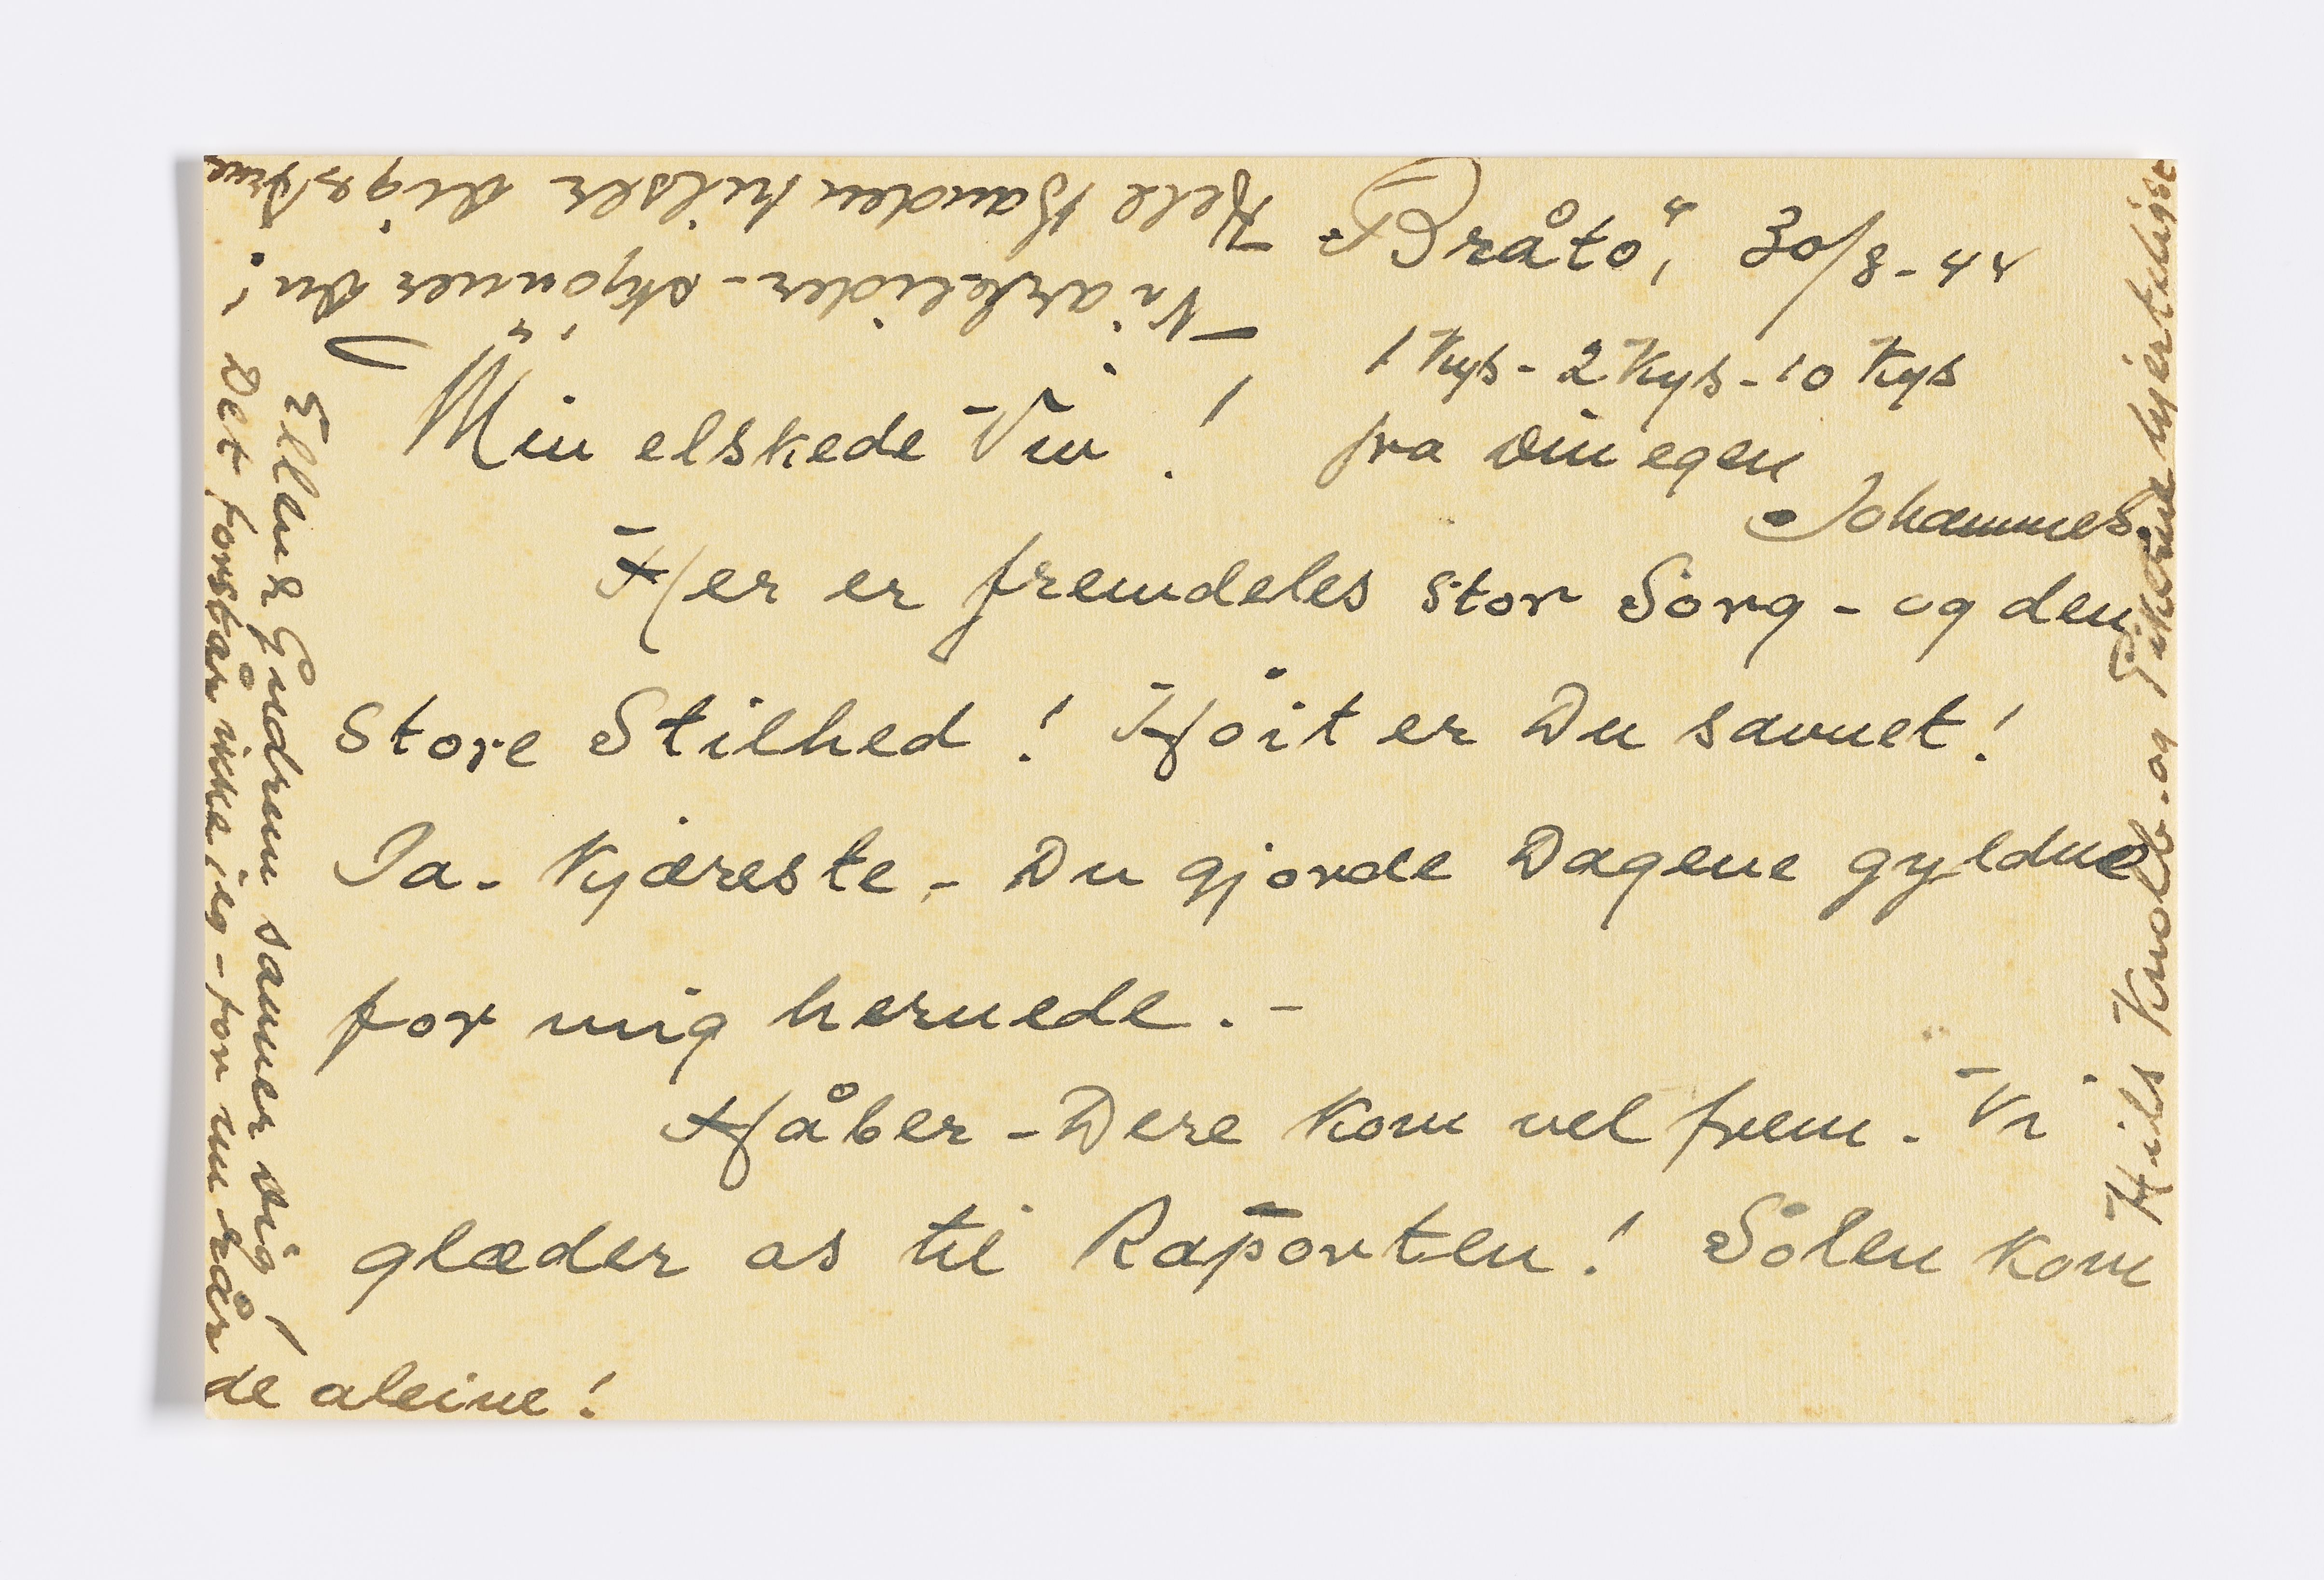 "Bråtø", 30/8-44
Min elskede Vin!
Her er fremdeles stor Sorg - og den
store Stilhed! Høit er Du savnet!
Ja - Kjæreste - Du gjorde Dagene gyldne
for mig hernede. -
Håber - Dere kom vel frem - Vi
glæder os til Raporten! Solen kom
1 Kys - 2 Kys - 10 Kys
fra Din egen
Johannes.
Hils Knoll. og hjerteligst
Hele Banden hilser dig
Vi arbeider - skjønner Du!
Ellen & Gudrun savner Dig!
Det forstår ikke jeg - for nu rår
de aleine!